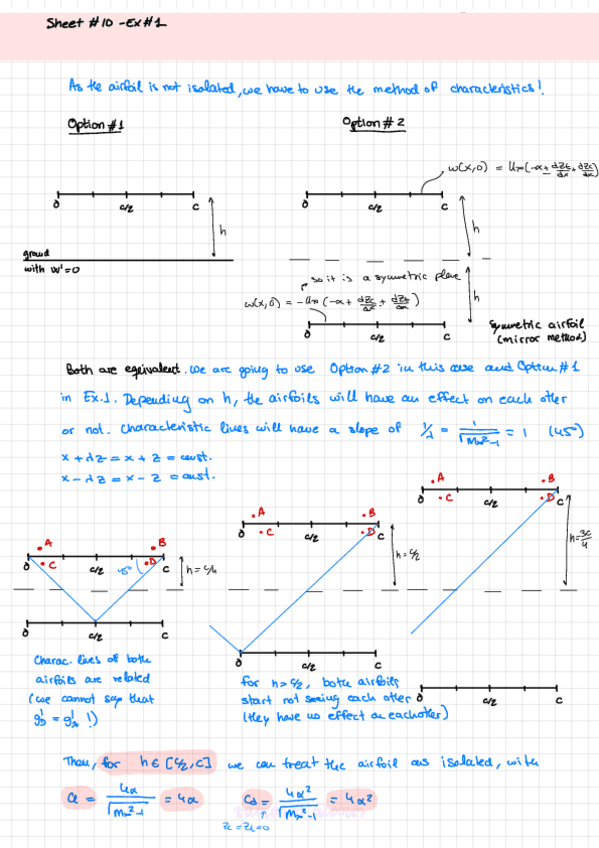 Sheet #10 - Ex#1
As the airfoil is not isolated, we have to use the method of characteristics!
Option #1
Option # 2
w(x,0) = U∞(-α + dZt/dx + dZc/dx)
0 c/2 c
0 c/2 c
h
h
ground
with W'=0
so it is a symmetric plane
h
w(x,0) = -U∞(-α + dZc/dx + dZt/dx)
0 c/2 c
Symmetric airfoil
(mirror method)
Both are equivalent. We are going to use Option #2 in this case and Option #1
in Ex.1. Depending on h, the airfoils will have an effect on each other
or not. Characteristic lines will have a slope of 1/λ = 1/√(M∞²-1) = 1 (45°)
x + λz = x + z = const.
x - λz = x - z = const.
A B
C D
0 c/2 c
h = 3c/4
A B
C D
0 c/2 c
h = c/2
A B
C D
0 c/2 c
45°
h = c/4
0 c/2 c
0 c/2 c
0 c/2 c
Charac. lines of both
airfoils are related
(we cannot say that
!)
for h > c/2, both airfoils
start not seeing each other
(they have no effect on eachother)
Then, for h ∈ [c/2, c] we can treat the airfoil as isolated, with
Cl = 4α/√(M∞²-1) = 4α
Cd = 4α²/√(M∞²-1) = 4α²